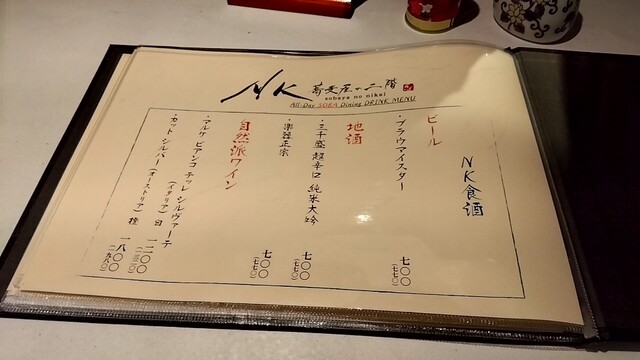 NK 蕎麦屋の二階
sobaya no nikai
All-Day SOBA Dining DRINK MENU
NK食酒
ビール
・ブラウマイスター 七〇〇 (七七〇)
地酒
・三千盛 超辛口 純米大吟 七〇〇 (七七〇)
・楽器正宗 七〇〇 (七七〇)
自然派ワイン
・アルケ ビアンコ チッレ シルヴァーテ (イタリア) 白 一二〇〇
・カット シルバー (オーストリア) 橙 一八〇〇 (一九八〇)